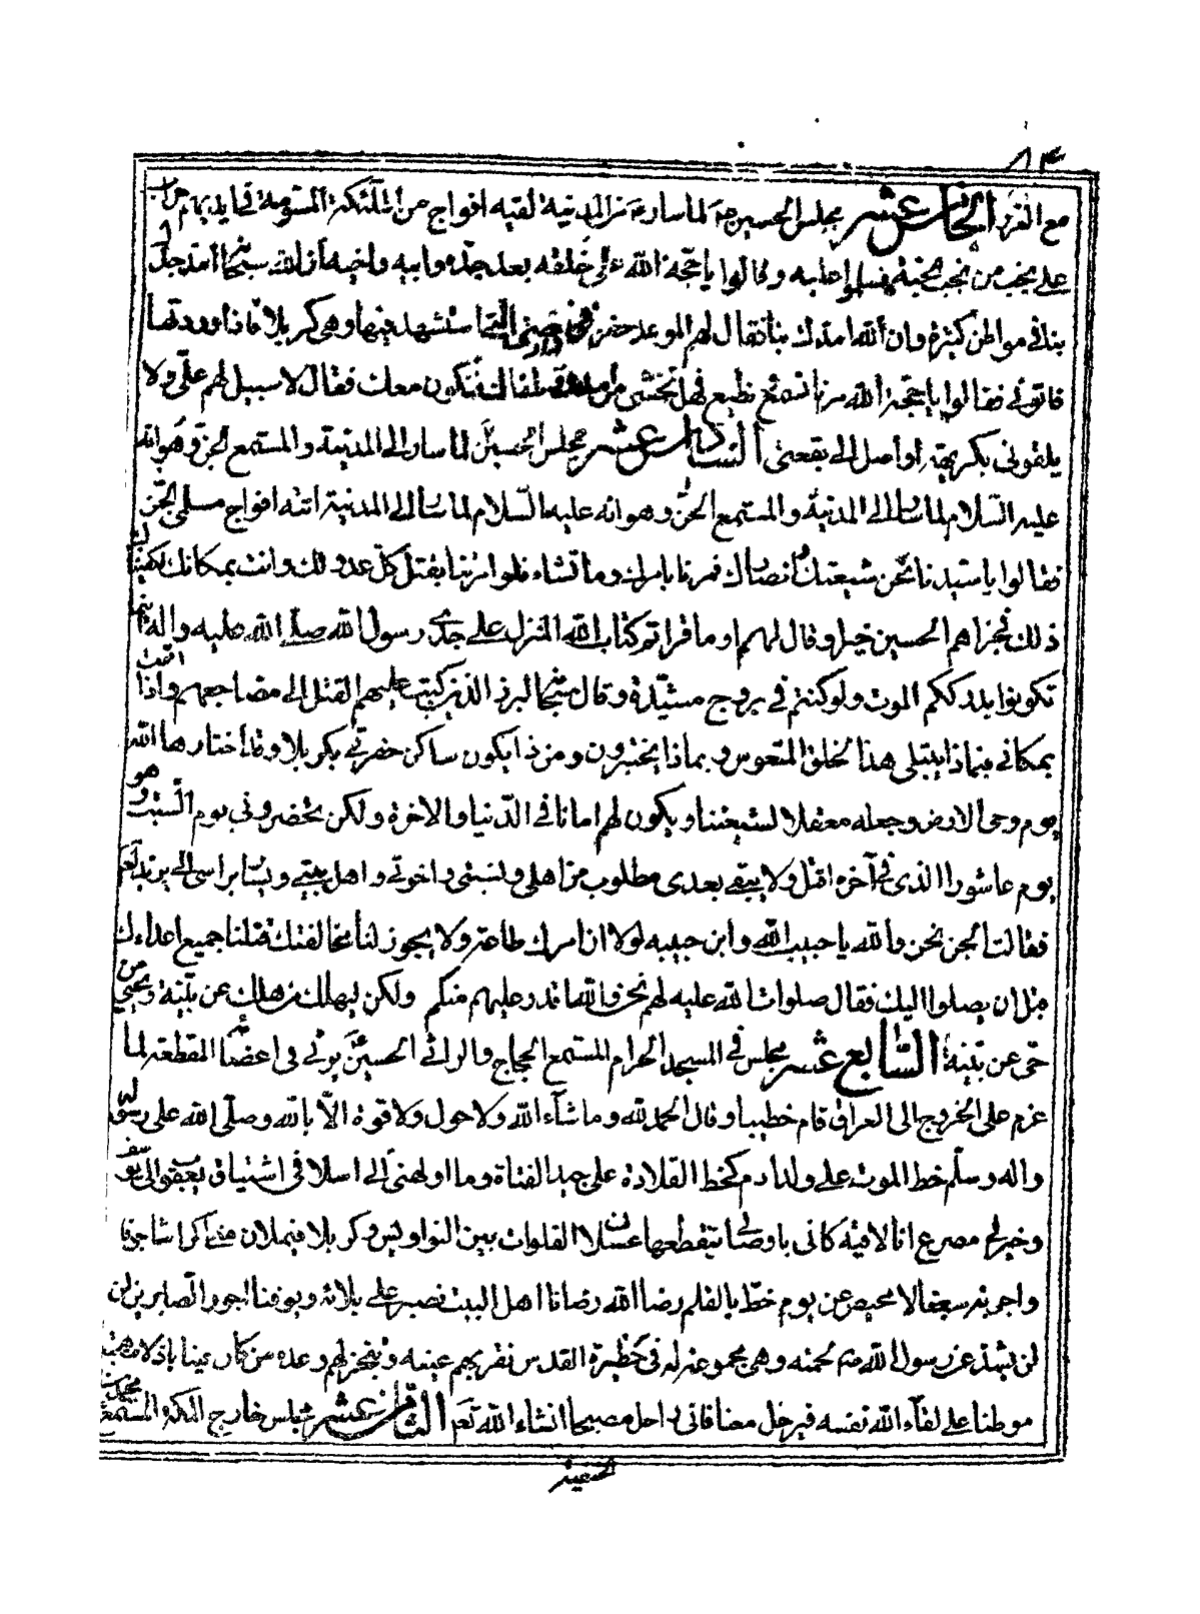 ٨٣
مع القرد الخامس عشر مجلس الحسين لما سار من المدينة لقيه افواج من الملئكة المسومة في ايديهم حراب
على نجب من نجب الجنة فسلموا عليه وقالوا يا حجة الله على خلقه بعد جده وابيه واخيه أن الله سبحانه امد جدك
بنا في مواطن كثيرة وان الله امدك بنا فقال لهم الموعد حفرتي وبقعتي التي استشهد فيها وهي كربلا فاذا وردتها
فاتوني فقالوا يا حجة الله مرنا نسمع نطيع فهل تخشى من عدو يلقاك فنكون معك فقال لا سبيل لهم على ولا
يلقونى بكريهة او اصل الى بقعتى السادس عشر مجلس الحسين لما سار الى المدينة والمستمع الجن وهو انه
عليه السلام لما سار الى المدينة والمستمع الجن وهو انه عليه السلام لما سار الى المدينة اتته افواج مسلمى الجن
فقالوا يا سيدنا نحن شيعتك وانصارك فمرنا بامرك وما تشاء فلو امرتنا بقتل كل عدو لك وانت بمكانك لكفيناك
ذلك فجزاهم الحسين خيرا وقال لهم او ما قراتم كتاب الله المنزل على جدى رسول الله صلى الله عليه واله اينما
تكونوا يدرككم الموت ولو كنتم في بروج مشيدة وقال سبحانه لبرز الذين كتب عليهم القتل الى مضاجعهم واذا اقمت
بمكانى فبماذا يبتلى هذا الخلق المتعوس وبماذا يختبرون ومن ذا يكون ساكن حفرتي بكربلا وقد اختارها الله
يوم دحى الارض وجعله معقلا لشيعتنا ويكون لهم امانا في الدنيا والاخرة ولكن تحضروني يوم السبت وهو
يوم عاشورا الذى في آخره اقتل ولا يبقى بعدى مطلوب من اهلى ونسبتى واخوتى واهل بيتى ويسار براسى الى يزيد لعنه
فقالت الجن نحن والله يا حبيب الله وابن حبيبه لولا ان امرك طاعة ولا يجوز لنا مخالفتك قتلنا جميع اعدائك
قبل ان يصلوا اليك فقال صلوات الله عليه لهم نحن والله اقدر عليهم منكم ولكن ليهلك من هلك عن بينة ويحيى من
حى عن بينة السابع عشر مجلس في المسجد الحرام المستمع الحجاج والراثى الحسين يرثى في اعضائه المقطعة لما
عزم على الخروج الى العراق قام خطيبا وقال الحمد لله وما شاء الله ولا حول ولا قوة الا بالله وصلى الله على رسوله
واله وسلم خط الموت على ولد ادم كخط القلادة على جيد الفتاة وما اولهنى الى اسلافى اشتياق يعقوب الى يوسف
وخير لى مصرع انا لاقيه كانى باوصالى تتقطعها عسلان الفلوات بين النواويس وكربلا فيملان منى اكراشا جوفا
واجربة سغبا لا محيص عن يوم خط بالقلم رضا الله رضانا اهل البيت نصبر على بلائه ويوفنا اجور الصابرين لن
لن يشذ عن رسول الله ص لحمته وهى مجموعة له في حظيرة القدس تقر بهم عينه وينجز لهم وعده من كان فينا باذلا مهجته
موطنا على لقاء الله نفسه فليرحل معنا فانى راحل مصبحا انشاء الله تعم الثامن عشر مجلس خارج المكة المستمع محمد بن
الحنفية